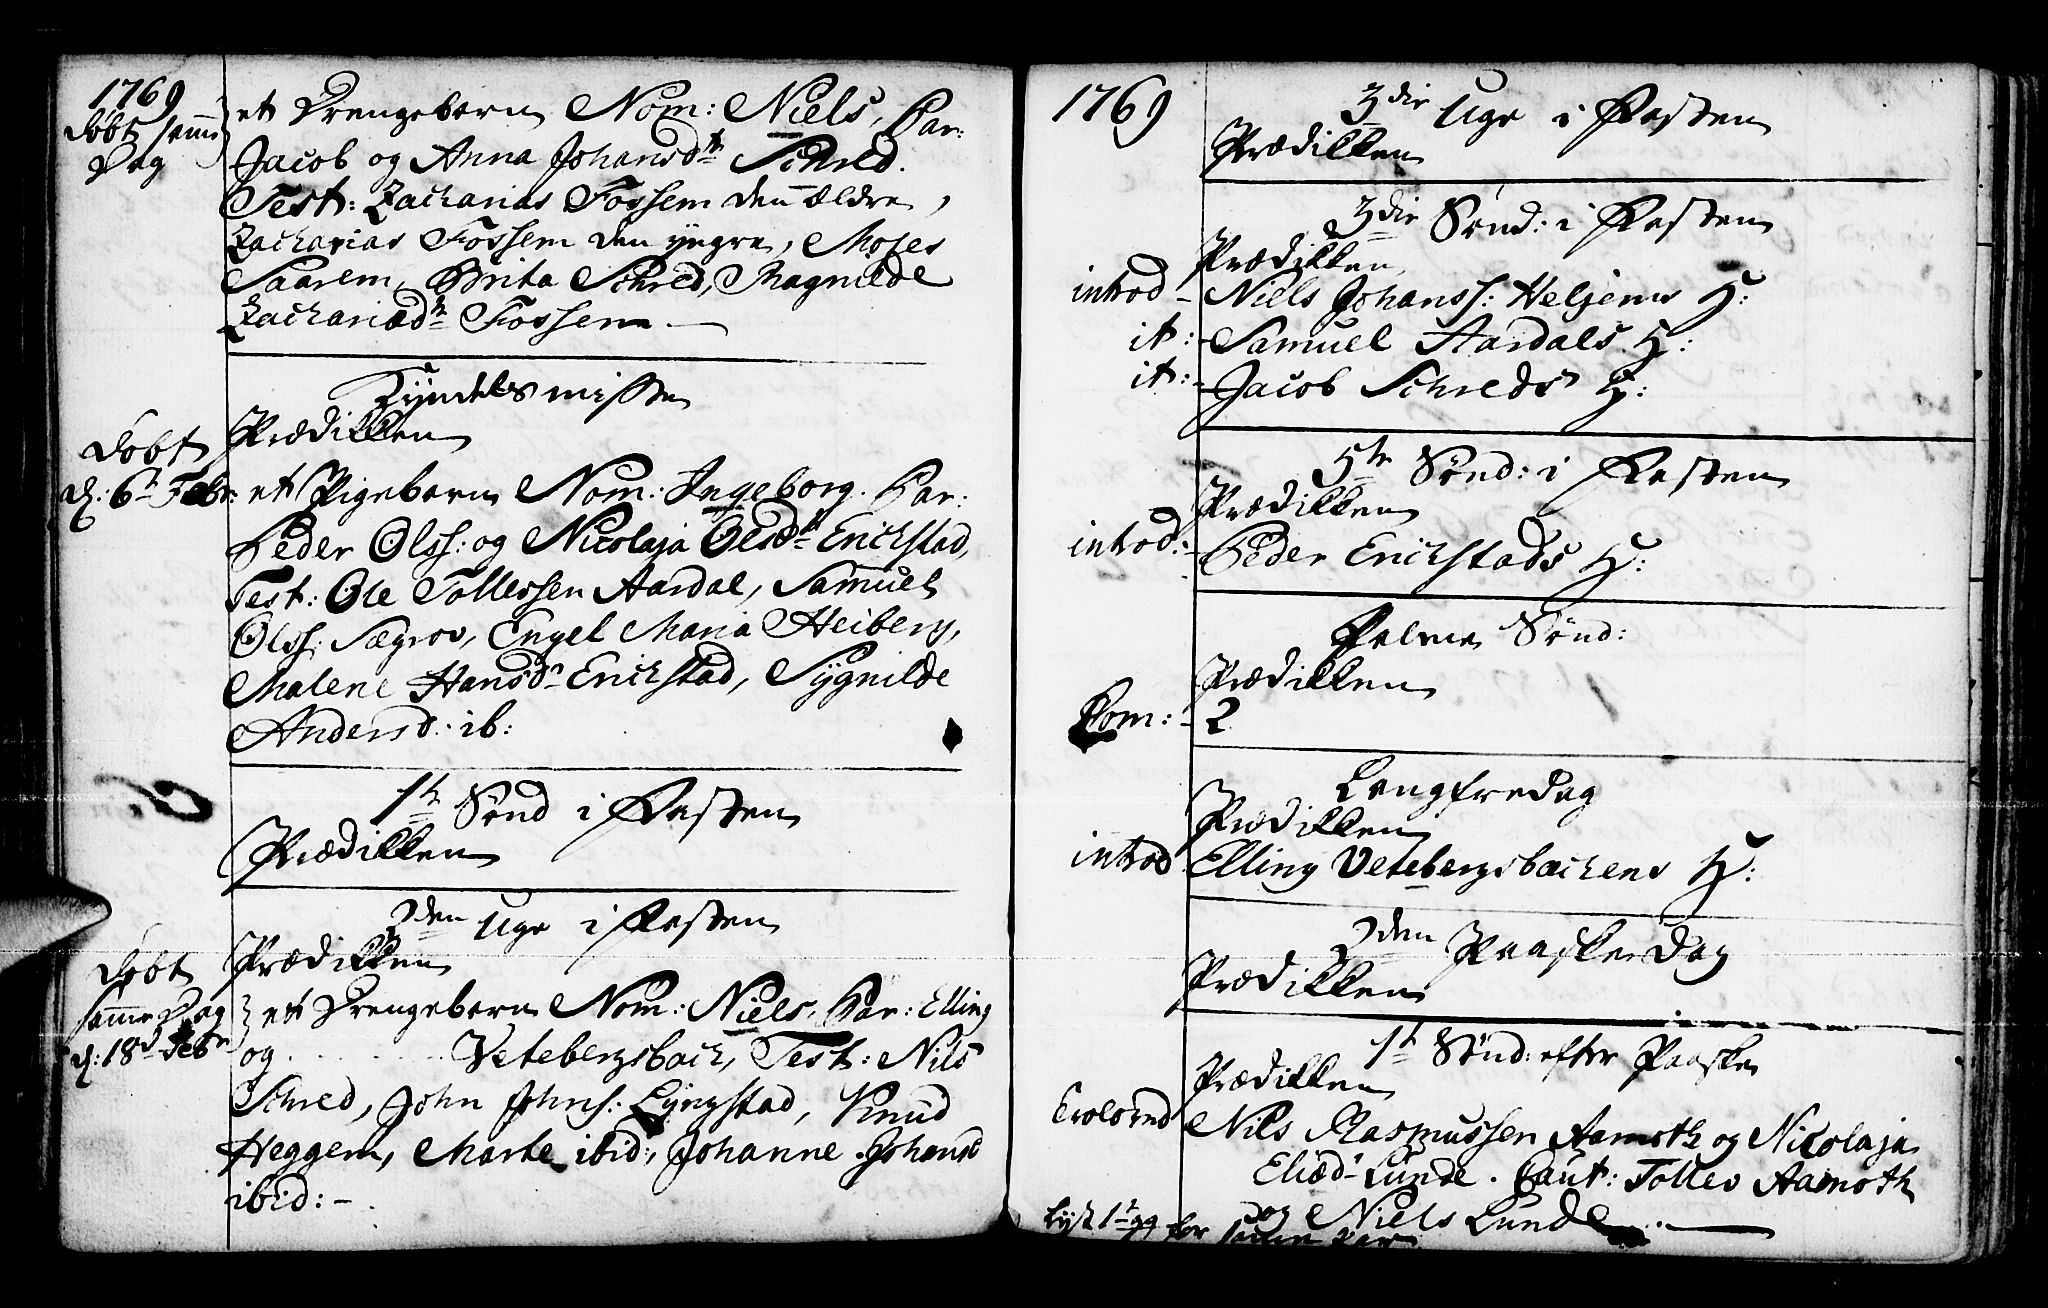 1769
døbt samme Dag
et Drengebarn Nom: Niels, Par:
Jacob og Anna Johansdtr Schred.
Test: Zacharias Fossem den ældre,
Zacharias Fossem den yngre, Moses
Saarem, Brita Schred, Magnilde
Zachariædtr Fossem.
Kyndelsmissen
Prædikken
døbt
d: 6te Febr:
et Pigebarn Nom: Ingeborg. Par:
Peder Olss: og Nicolaja Olsdtr Erichstad,
Test: Ole Tollessen Aardal, Samuel
Olss: Sægrov, Engel Maria Heiberg,
Malene Hansdr Erichstad, Sygnilde
Andersd: ib:
1te Sønd i Fasten
Prædikken
2den Uge i Fasten
Prædikken
døbt
samme Dag
d: 18d Febr
et Drengebarn Nom: Niels, Par: Elling
og Vetebergsbach, Test: Nils
Schred, John Johns: Lyngstad, Knud
Heggem, Marte ibid:, Johanne Johansd
ibid: -
1769
3die Uge i Fasten
Prædikken
3die Sønd: i Fasten
Prædikken
introd - Niels Johanss: Heljems H:
it: - Samuel Aardals H:
it: - Jacob Schreds H:
5te Sønd: i Fasten
Prædikken
introd: - Peder Erichstads H:
Palme Sønd:
Prædikken
Com: - 2
Langfredag
Prædikken
introd Elling Vetebergsbachens H:
2den Paaske Dag
Prædikken
1te Sønd: efter Paaske
Prædikken
Troloved Nils Rasmussen Aamoth og Nicolaja
Eliæd: Lunde. Caut: Tollev Aamoth
og Niels Lunde.
Lyst 1te gg for samme Par